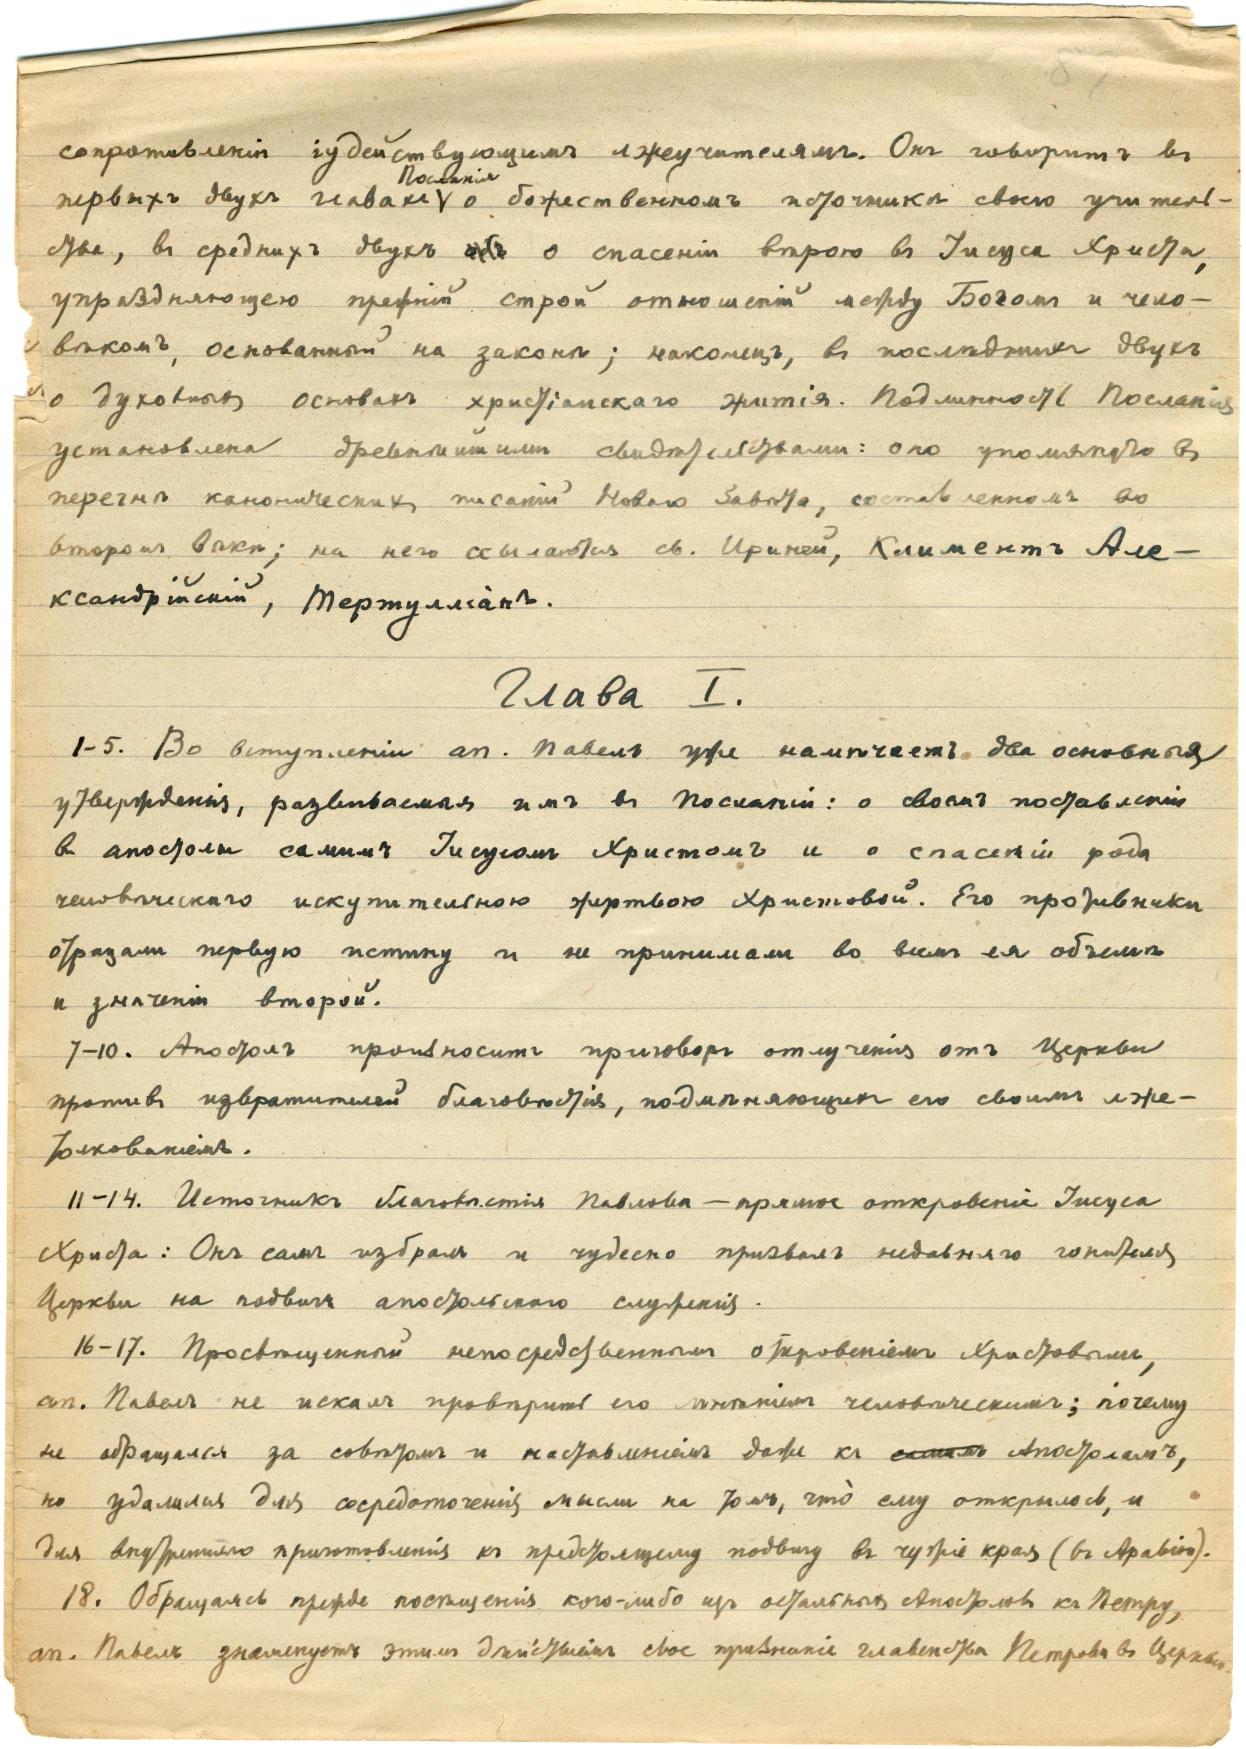 сопротивленіи іудействующимъ лжеучителямъ. Онъ говоритъ въ
первыхъ двухъ главахъ Посланія о божественномъ источникѣ своего учитель-
ства, въ среднихъ двухъ о спасеніи вѣрою въ Іисуса Христа,
упраздняющею прежній строй отношеній между Богомъ и чело-
вѣкомъ, основанный на законѣ; наконецъ, въ послѣднихъ двухъ
о духовныхъ основахъ христіанскаго житія. Подлинность Посланія
установлена древнѣйшими свидѣтельствами: оно упомянуто въ
перечнѣ каноническихъ писаній Новаго Завѣта, составленномъ во
второмъ вѣкѣ; на него ссылаются св. Ириней, Климентъ Але-
ксандрійскій, Тертулліанъ.
Глава I.
1-5. Во вступленіи ап. Павелъ уже намѣчаетъ два основныя
утвержденія, развиваемыя имъ въ Посланіи: о своемъ поставленіи
въ апостолы самимъ Іисусомъ Христомъ и о спасеніи рода
человѣческаго искупительною жертвою Христовой. Его противники
отрицали первую истину и не принимали во всемъ ея объемѣ
и значеніи второй.
7-10. Апостолъ произноситъ приговоръ отлученія отъ Церкви
противъ извратителей благовѣстія, подмѣняющихъ его своимъ лже-
толкованіемъ.
11-14. Источникъ благовѣстія Павлова — прямое откровеніе Іисуса
Христа: Онъ самъ избралъ и чудесно призвалъ недавняго гонителя
Церкви на подвигъ апостольскаго служенія.
16-17. Просвѣщенный непосредственнымъ откровеніемъ Христовымъ,
ап. Павелъ не искалъ провѣрить его мнѣніемъ человѣческимъ; почему
не обращался за совѣтомъ и наставленіемъ даже къ самимъ Апостоламъ,
но удалился для сосредоточенія мысли на томъ, что̀ ему открылось, и
для внутренняго приготовленія къ предстоящему подвигу въ чужіе края (въ Аравію).
18. Обращаясь прежде посѣщенія кого-либо изъ остальныхъ Апостоловъ къ Петру,
ап. Павелъ знаменуетъ этимъ дѣйствіемъ свое признаніе главенства Петрова въ Церкви.